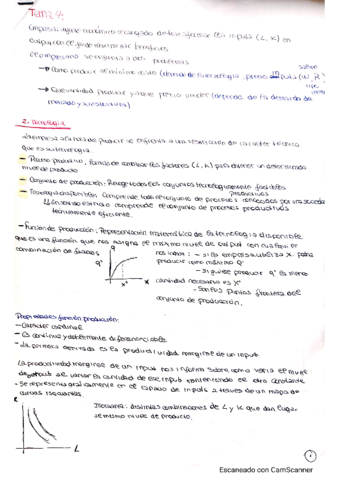 Tema 4
Empresa: agente económico encargado de transformar los inputs (L, K) en
output con el fin de maximizar beneficios
El empresario se enfrenta a dos problemas
→ Cómo producir al mínimo coste (depende de la tecnología, precio inputs (W, R)
→ Que cantidad producir y a que precio vender (depende de la demanda de
mercado y sus
2. Tecnología
La empresa a la hora de producir se enfrenta a una restricción de carácter técnico
que es su tecnología.
- Proceso productivo: formas de combinar los factores (L, K) para obtener un determinado
nivel de producto
- Conjunto de producción: Recoge todos los conjuntos tecnológicamente factibles
- Tecnología disponible: Comprende todos el conjunto de procesos productivos conocidos por una sociedad
comprende el conjunto de procesos productivos
técnicamente eficiente.
- Función de producción: Representación matemática de la tecnología disponible,
que es una función que nos asigna el máximo nivel de output con cualquier
combinación de factores
nos indica: - si la empresa utiliza X para
producir como máximo Q°
- Si quiere producir q° la menor
cantidad necesaria es X°
- Son los puntos frontera del
conjunto de producción.
Propiedades función producción:
- Carácter cardinal
- Es continua y doblemente diferenciable
- La primera derivada es la productividad marginal de un input
La productividad marginal de un input nos informa sobre como varía el nivel
de output al variar la cantidad de ese input manteniendo el otro constante
- Se representa gráficamente en el espacio de inputs a través de un mapa de
curvas isocuantas
K
Isocuanta: distintas combinaciones de L y K que dan lugar
al mismo nivel de producto.
L
1
Escaneado con CamScanner